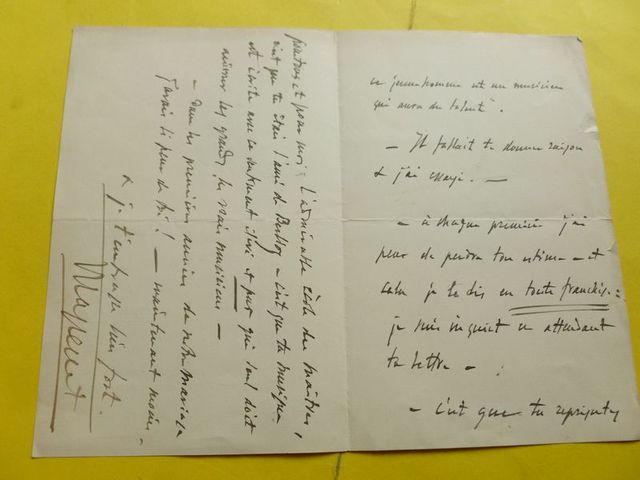 ce jeune homme est un musicien
qui aura du talent".
— Il fallait te donner raison
& j'ai essayé. —
— à chaque première j'ai
peur de perdre ton estime — et
cela je le dis en toute franchise :
je suis inquiet en attendant
ta lettre — :
— c'est que tu représentes
pour tous et pour moi l'admirable école des maîtres,
c'est que tu étais l'ami de Berlioz — c'est que ta musique
est écrite avec ce sentiment élevé et pur qui seul doit
animer les grands, les vrais musiciens —
— dans les premières années de notre mariage
j'avais si peur de toi! — maintenant moins —
& je t'embrasse bien fort.
Massenet